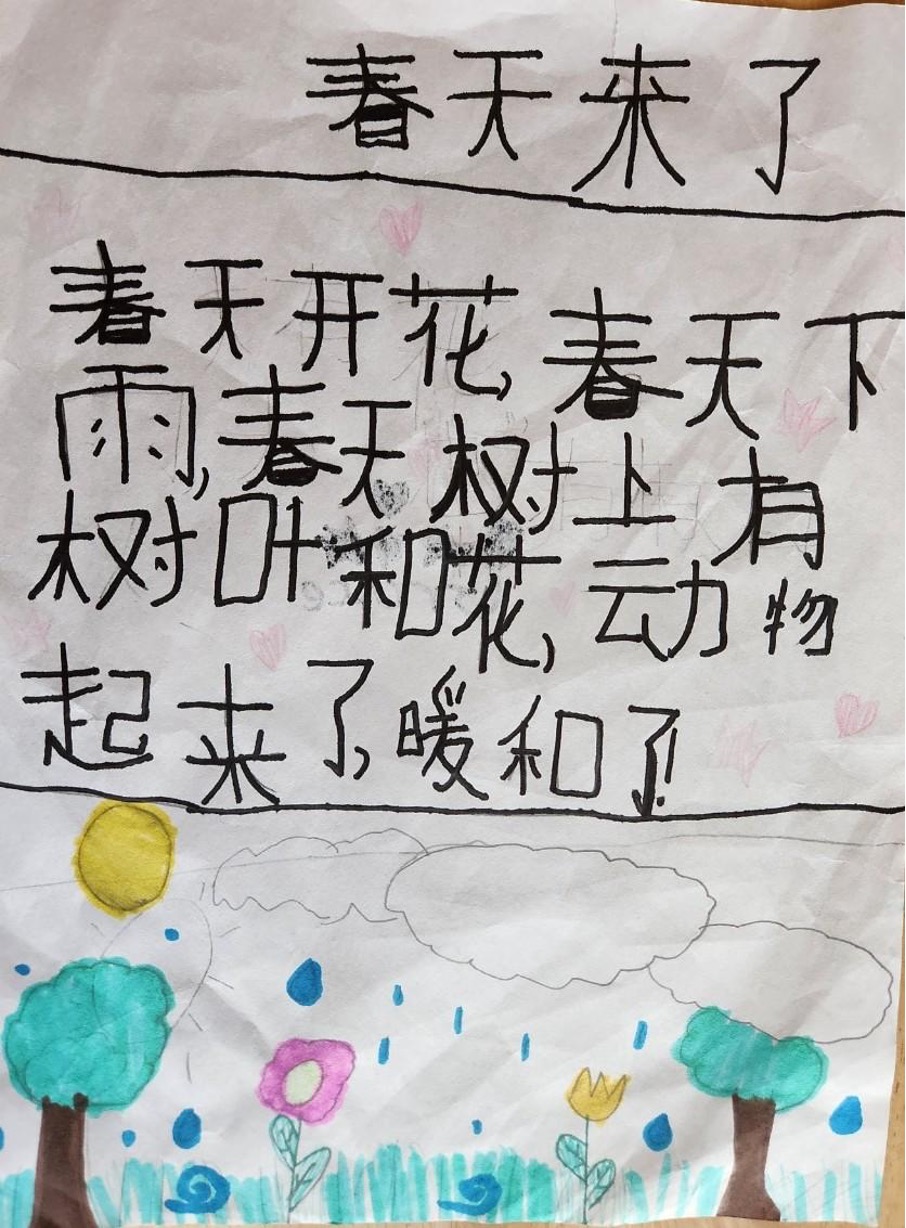 春天来了
春天开花,春天下
雨,春天树上有
树叶和花,动物
起来了,暖和了!